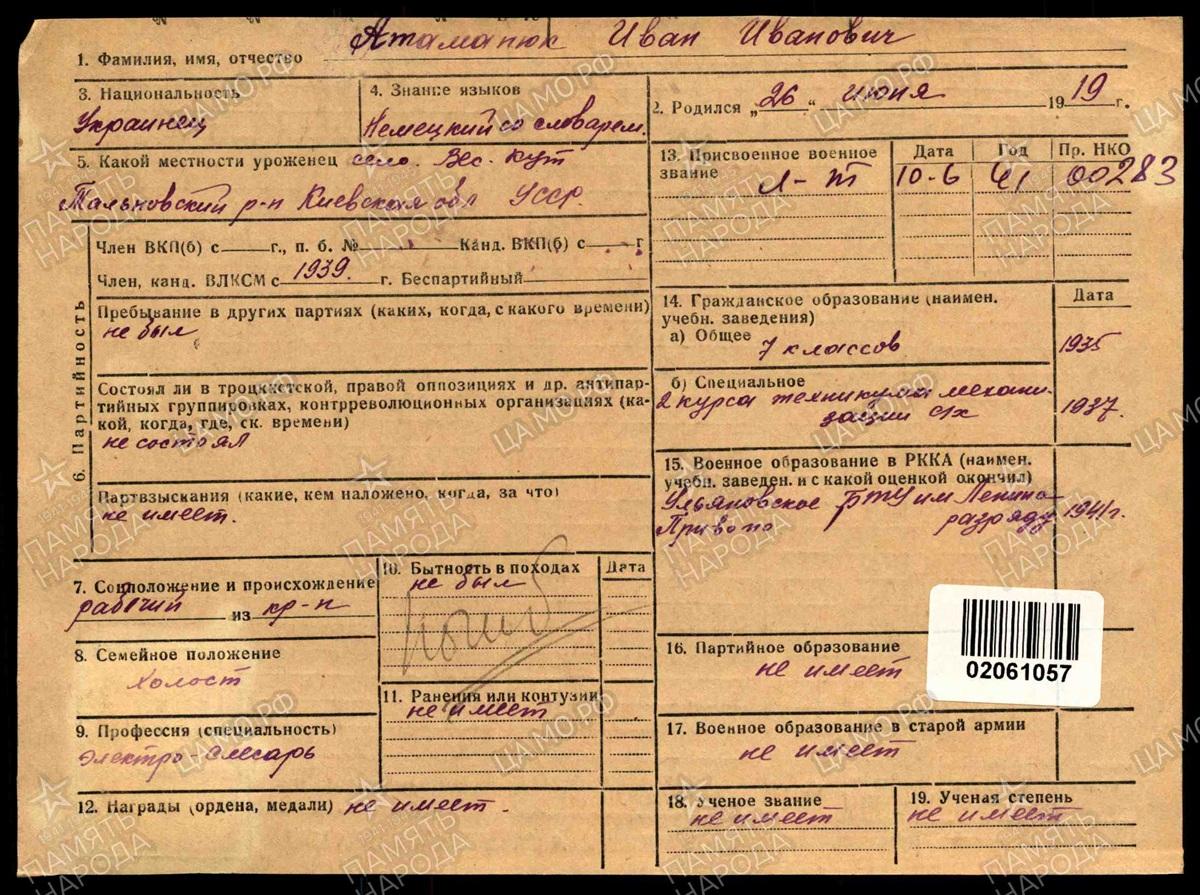 Атаманюк Иван Иванович
1. Фамилия, имя, отчество
3. Национальность
Украинец
4. Знание языков
Немецкий со словарем.
2. Родился „26“ июня 1919 г.
5. Какой местности уроженец село. Вес. Кут
Тальновский р-н Киевская обл УССР.
13. Присвоенное военное звание
Дата Год Пр. НКО
Л-т 10-6 41 00283
6. Партийность
Член ВКП(б) с г., п. б. № Канд. ВКП(б) с г
Член, канд. ВЛКСМ с 1939. г. Беспартийный
Пребывание в других партиях (каких, когда, с какого времени)
не был
Состоял ли в троцкистской, правой оппозициях и др. антипар-
тийных группировках, контрреволюционных организациях (ка-
кой, когда, где, ск. времени)
не состоял
Партвзыскания (какие, кем наложено, когда, за что)
не имеет.
14. Гражданское образование (наимен.
учебн. заведения)
Дата
а) Общее
7 классов 1935
б) Специальное
2 курса техникума механи-
зации с/х 1937.
15. Военное образование в РККА (наимен.
учебн. заведен. и с какой оценкой окончил)
Ульяновское БТУ им Ленина
по разряду 1941 г.
7. Соцположение и происхождение
рабочий из кр-н
8. Семейное положение
Холост
9. Профессия (специальность)
электро-слесарь
10. Бытность в походах Дата
не был
Погиб
11. Ранения или контузии
не имеет
12. Награды (ордена, медали) не имеет.
16. Партийное образование
не имеет
02061057
17. Военное образование в старой армии
не имеет
18. Ученое звание
не имеет
19. Ученая степень
не имеет
ПАМЯТЬ НАРОДА
ЦАМО.РФ